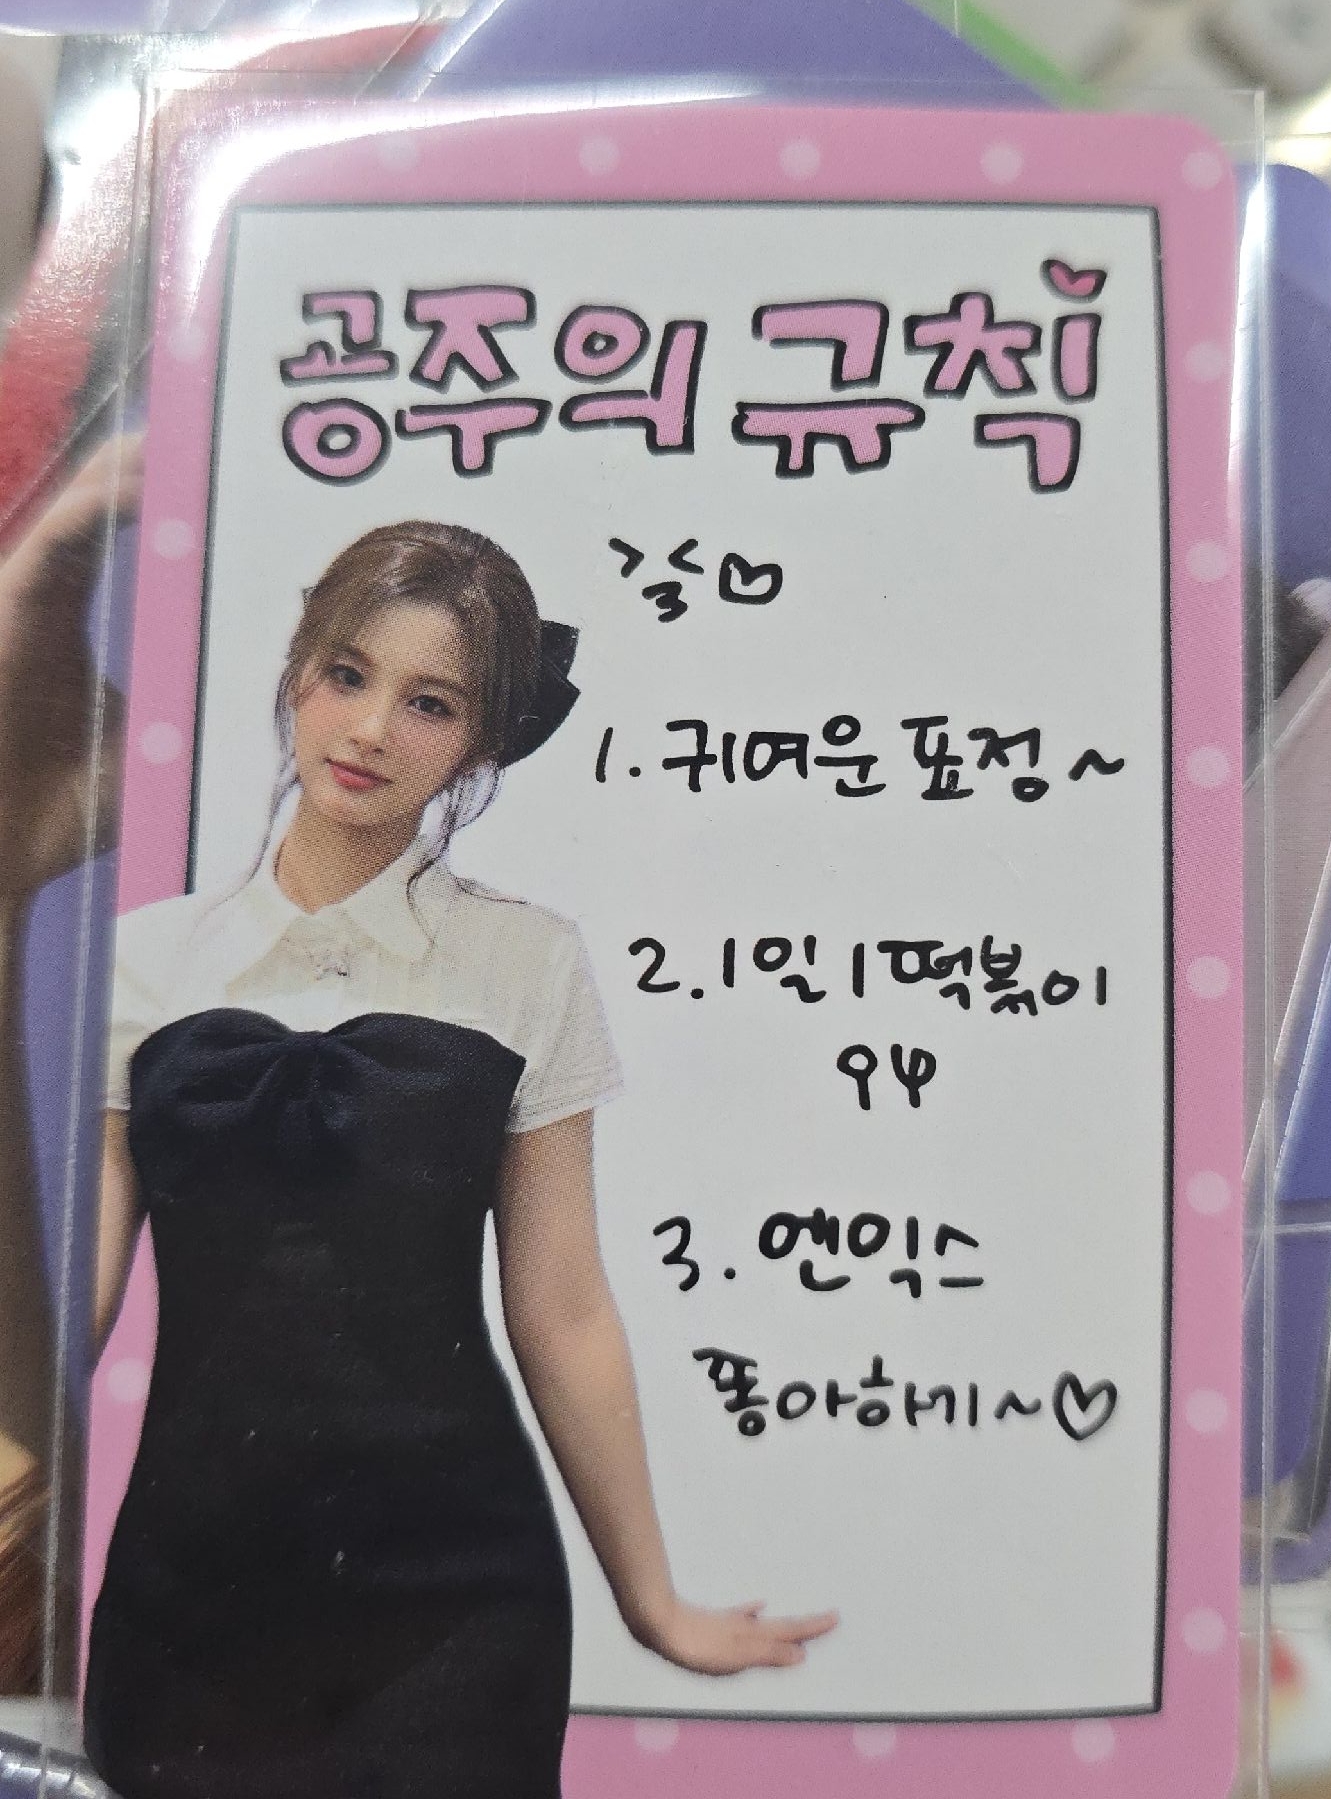 공주의 규칙
>3<♡
1. 귀여운 표정~
2. 1일 1떡볶이
3. 엔믹스
똥아하기~♡